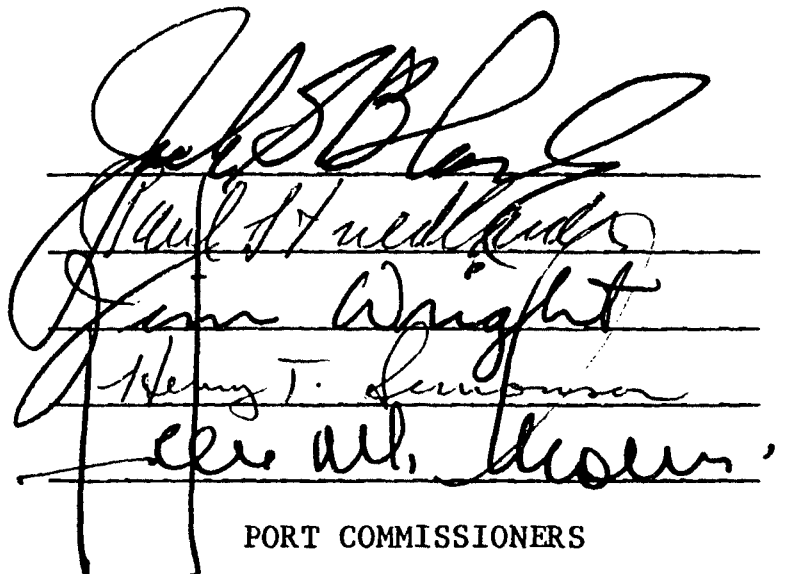 Jack S Block
Paul S Friedlander
Jim Wright
Henry T. Simonson
M.
PORT COMMISSIONERS